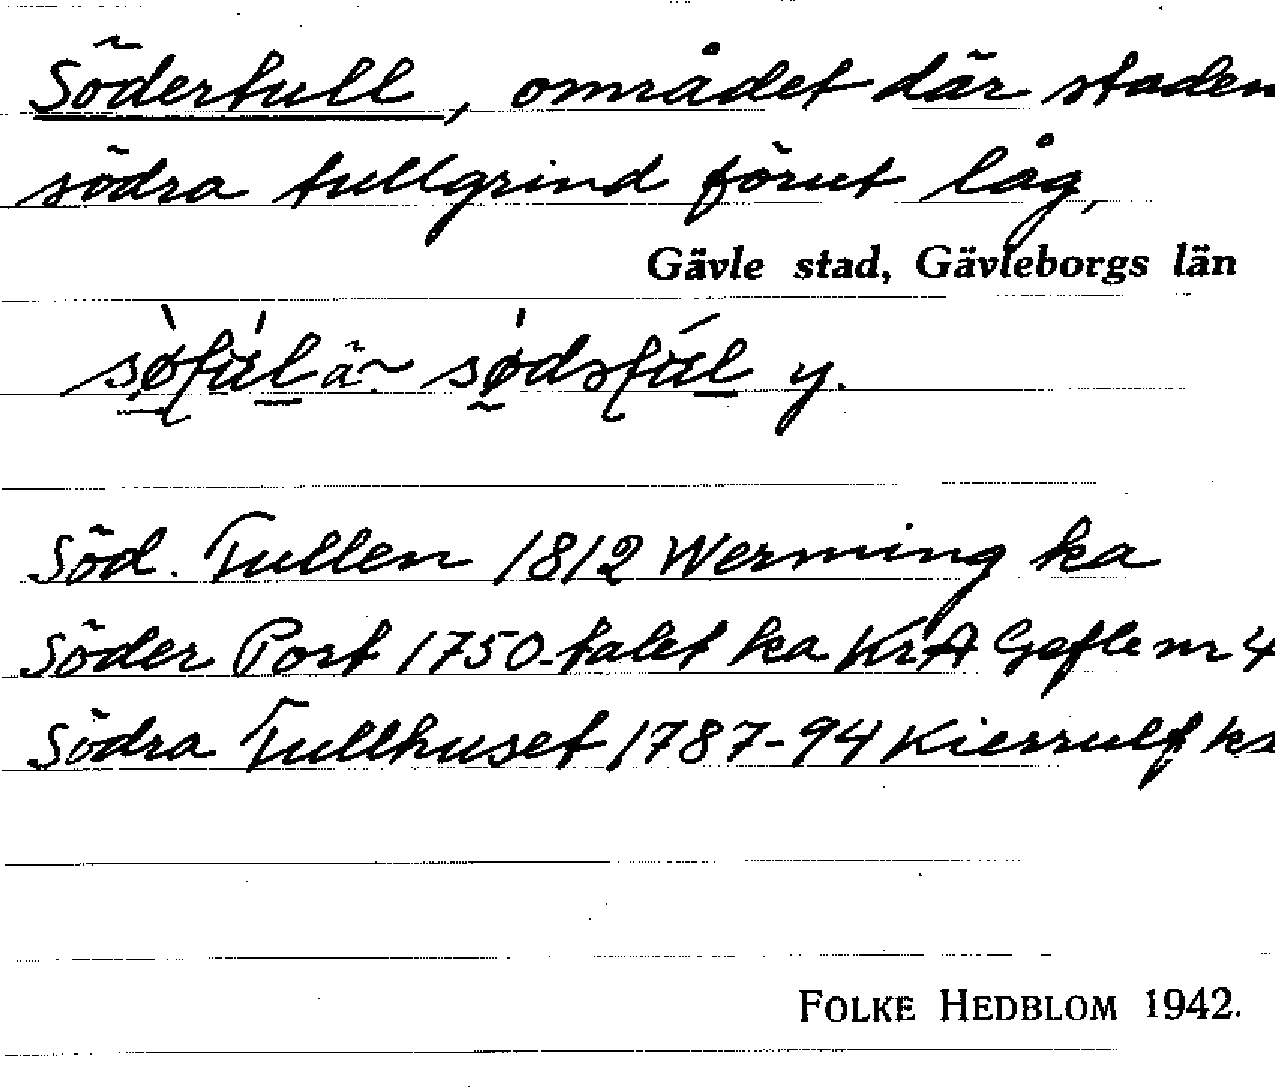 Södertull, området där staden
södra tullgrind förut låg,
Gävle stad, Gävleborgs län
y.
Söd. Tullen 1812 Werming ka
Söder Port 1750-talet ka KrA Gefle nr 4
Södra Tullhuset 1787-94 Kierrulf ka
FOLKE HEDBLOM 1942.